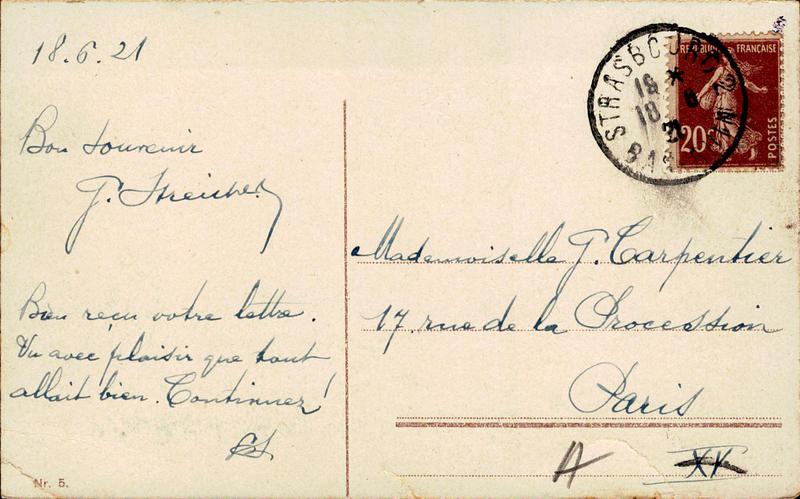 18.6.21
Bon souvenir
Bien reçu votre lettre.
Vu avec plaisir que tout
allait bien. Continuez!
Nr. 5.
STRASBOURG 2
18
REPUBLIQUE FRANÇAISE
20c
POSTES
Mademoiselle G. Carpentier
17, rue de la Procession
Paris
A XV